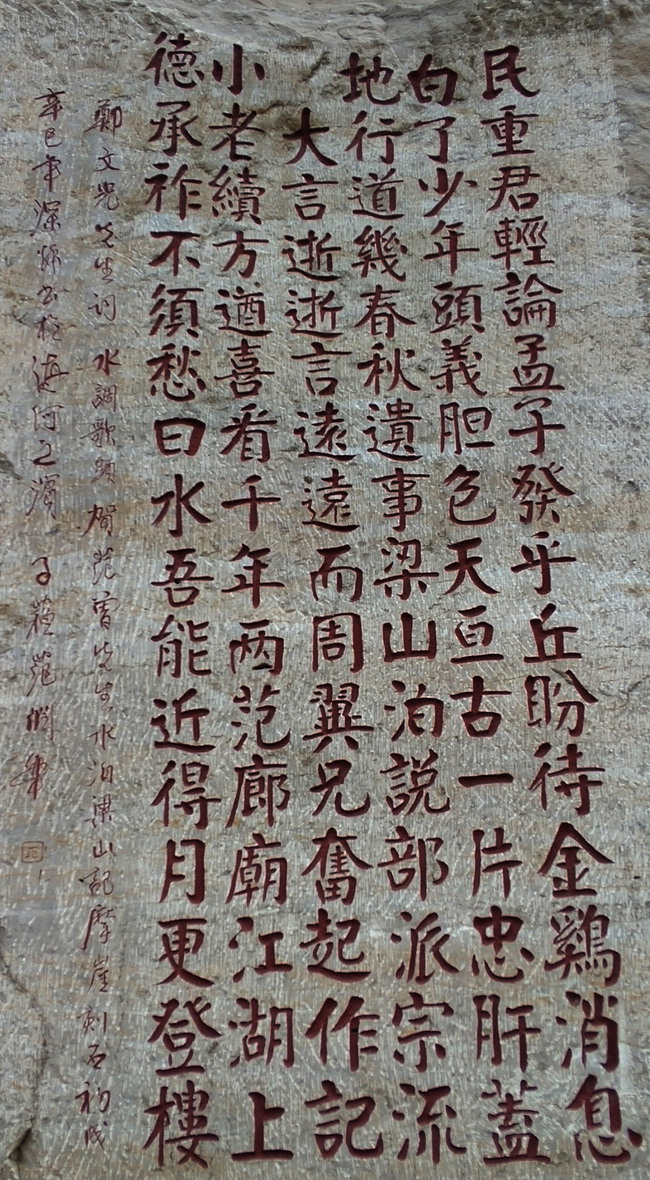 民重君輕論孟子發乎丘盼待金鷄消息
白了少年頭義胆包天亘古一片忠肝蓋
地行道幾春秋遺事梁山泊説部派宗流
大言逝逝言遠遠而周翼兄奮起作記
小老續方遒喜看千年两范廊廟江湖上
德承祚不須愁曰水吾能近得月更登樓
鄭文光先生词 水調歌頭 賀范曾先生水泊梁山記摩崖刻石初成
辛巳年深书於海河之濱 范